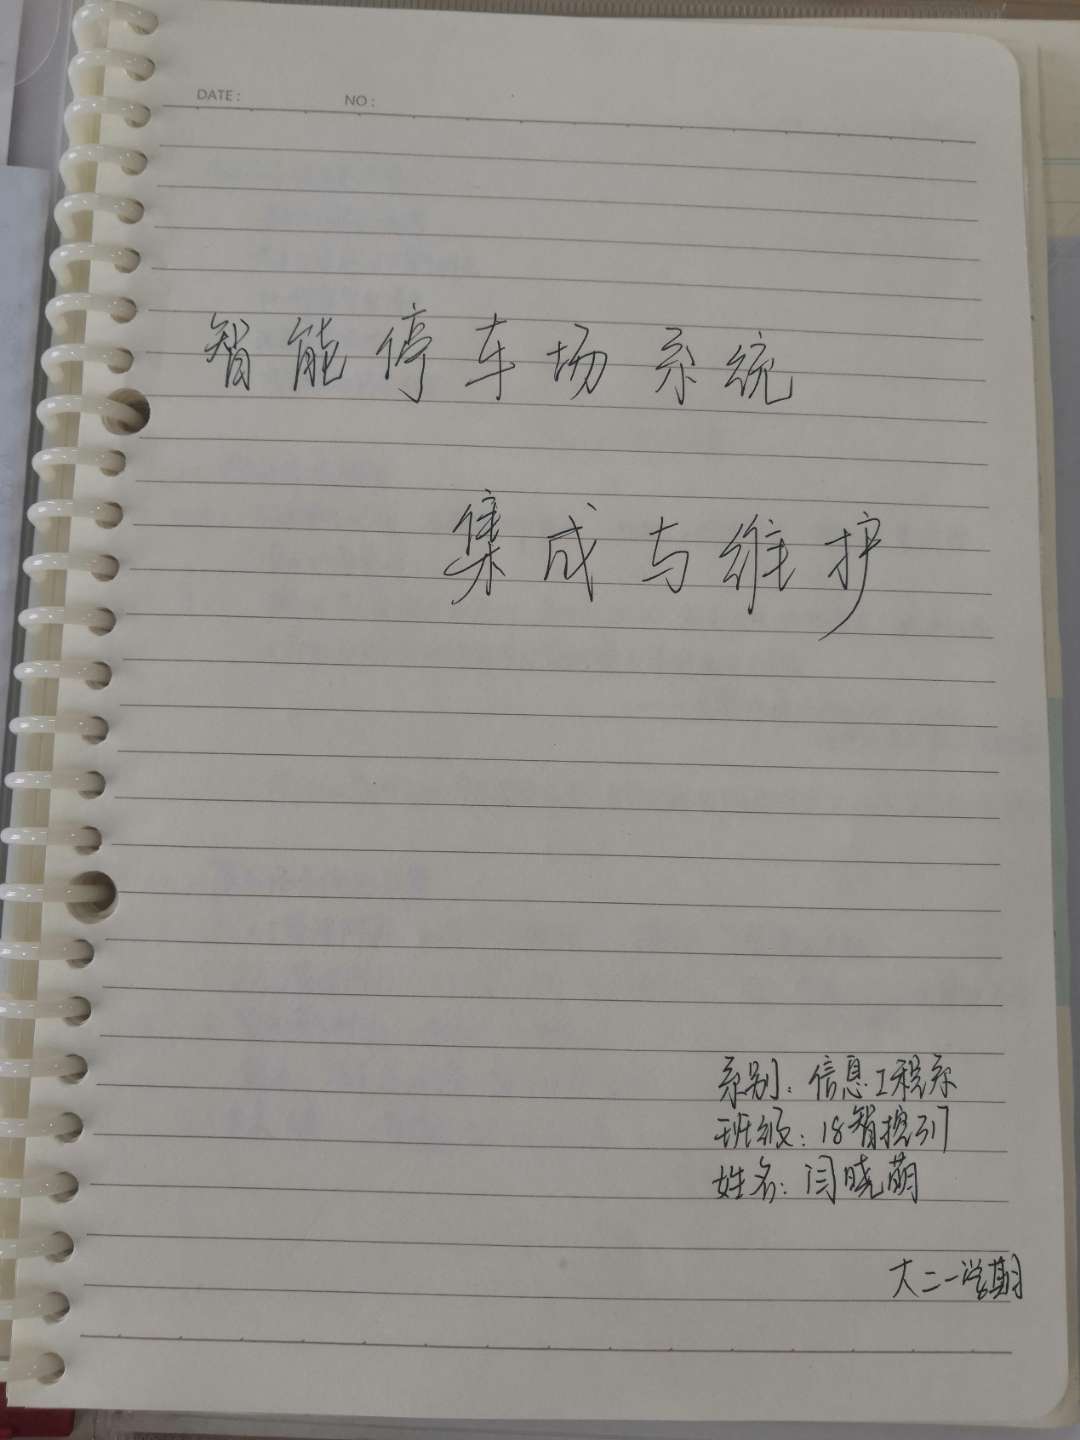 DATE: NO:
智能停车场系统
集成与维护
系别：信息工程系
班级：18智控31
姓名：闫晓萌
大二一学期